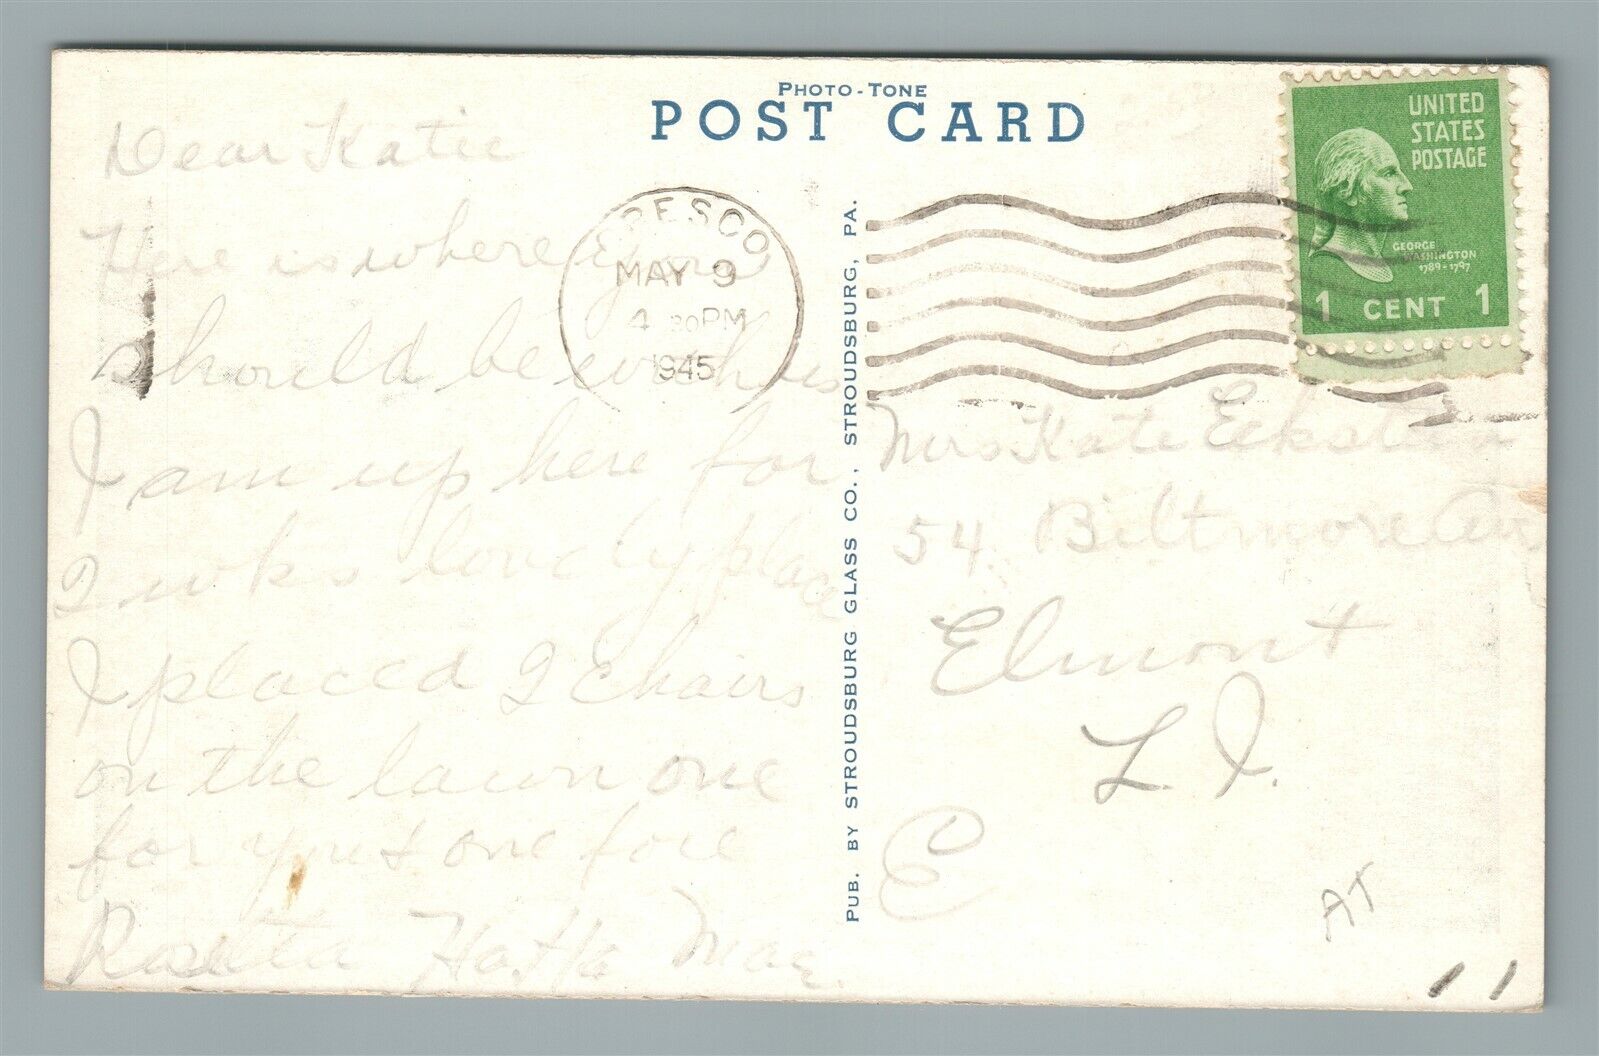 PHOTO-TONE
POST CARD
UNITED
STATES
POSTAGE
GEORGE
WASHINGTON
1789-1797
1 CENT 1
CRESCO
MAY 9
4 30PM
1945
Dear Katie
Here is where you
should be with us
I am up here for
2 wks lovely place
I placed 2 Chairs
on the lawn one
for you & one fore
Rosetta Ha Ha Mae
PUB. BY STROUDSBURG GLASS CO., STROUDSBURG, PA.
Mrs Kate Eckstein
54 Biltmore Ave
Elmont
L. I.
E
AT